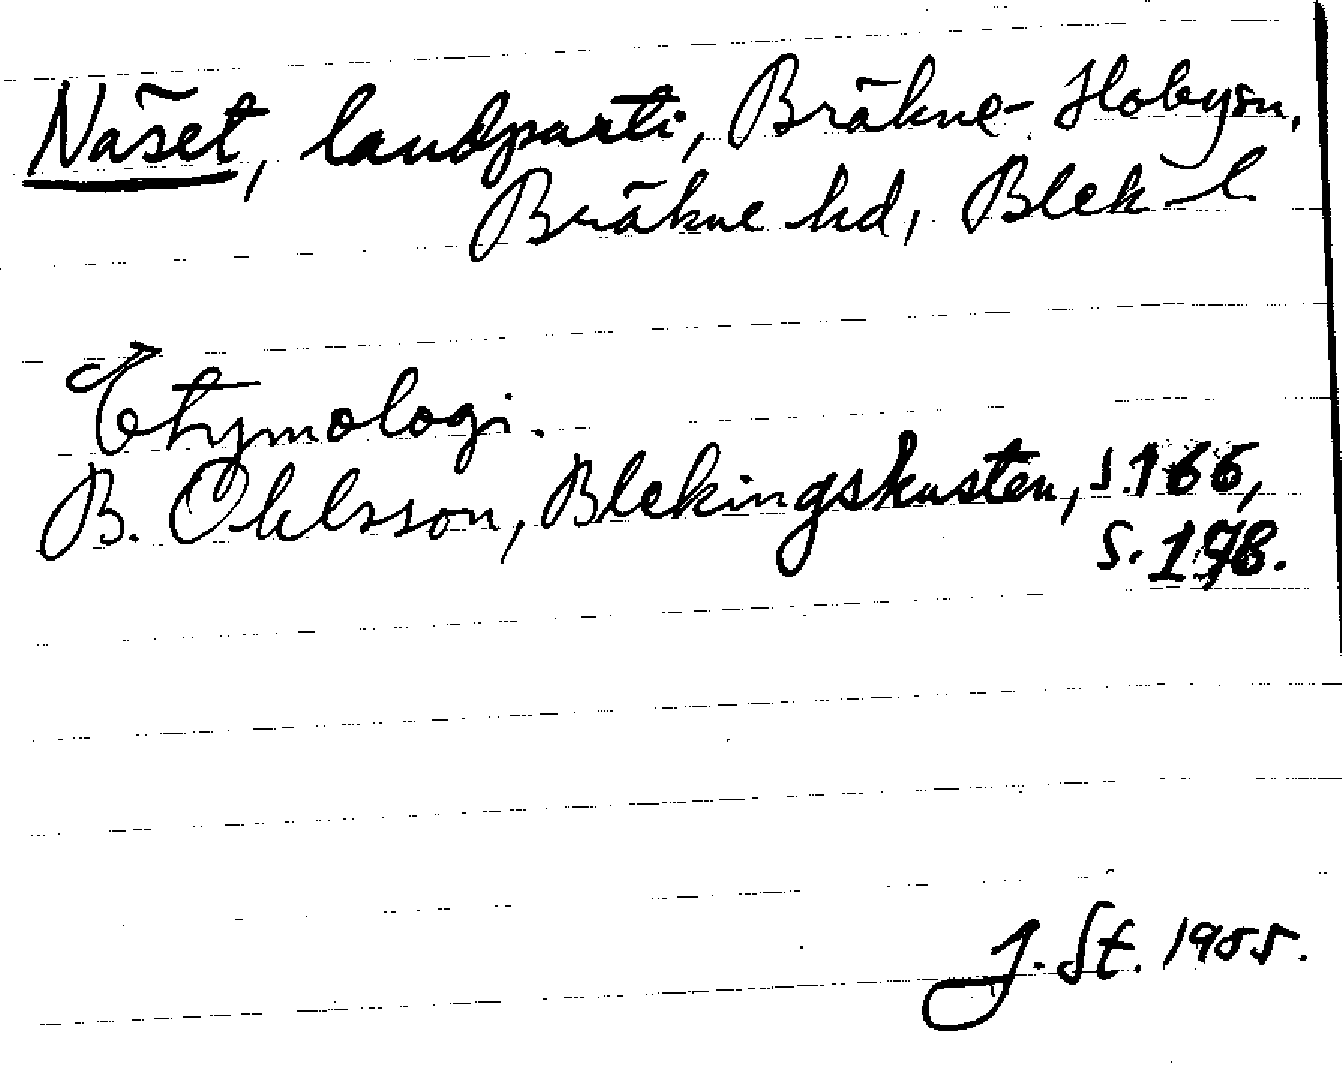 Näset, landparti, Bräkne-Hoby sn,
Bräkne hd, Blek l
Etymologi.
B. Ohlsson, Blekingskusten, s. 166,
s. 198.
J. St. 1955.